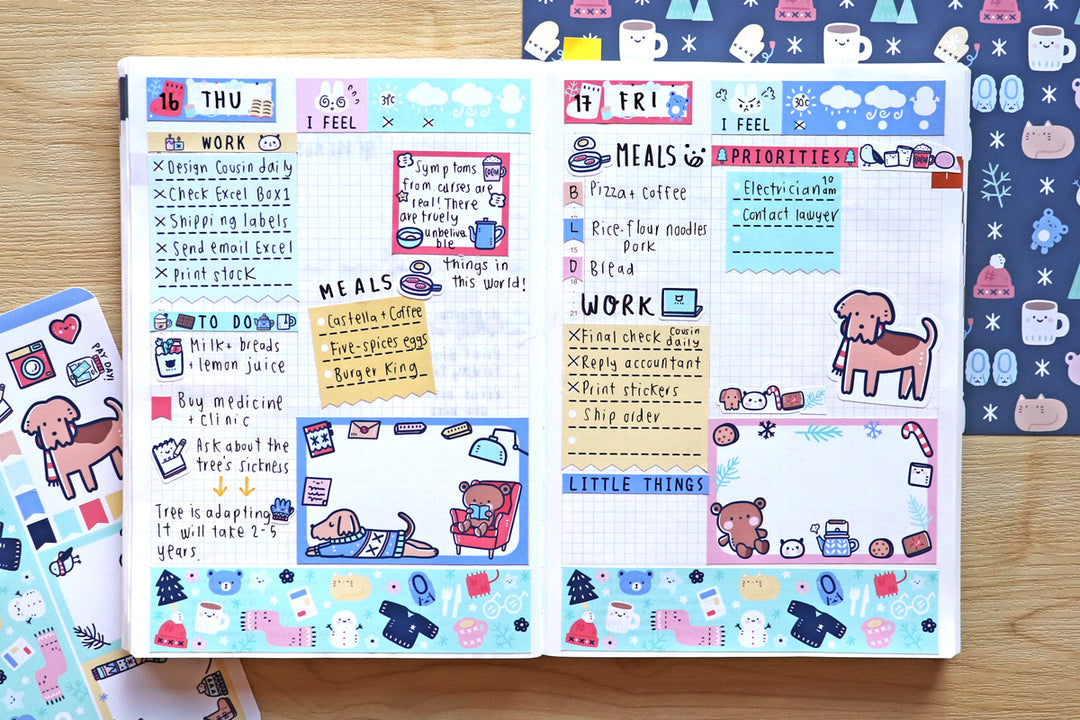 16 THU
I FEEL
31°C
WORK
× Design Cousin daily
× Check Excel Box1
× Shipping labels
× Send email Excel
× Print stock
TO DO
Milk + breads
+ lemon juice
Buy medicine
+ clinic
Ask about the
tree's sickness
Tree is adapting
It will take 2-5
years.
Symptoms
from curses are
real! There
are truely
unbeliva
ble
things in
this world!
MEALS
Castella + Coffee
Five-spices eggs
Burger King
17 FRI
I FEEL
30°C
MEALS
B Pizza + coffee
L Rice-flour noodles
pork
15
D Bread
18
21
WORK
× Final check Cousin
daily
× Reply accountant
× Print stickers
Ship order
LITTLE THINGS
PRIORITIES
Electrician 10
am
Contact lawyer
PAY DAY!